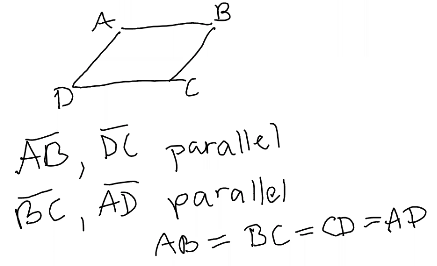 A B
D C
A̅B̅, D̅C̅ parallel
B̅C̅, A̅D̅ parallel
AB = BC = CD = AD